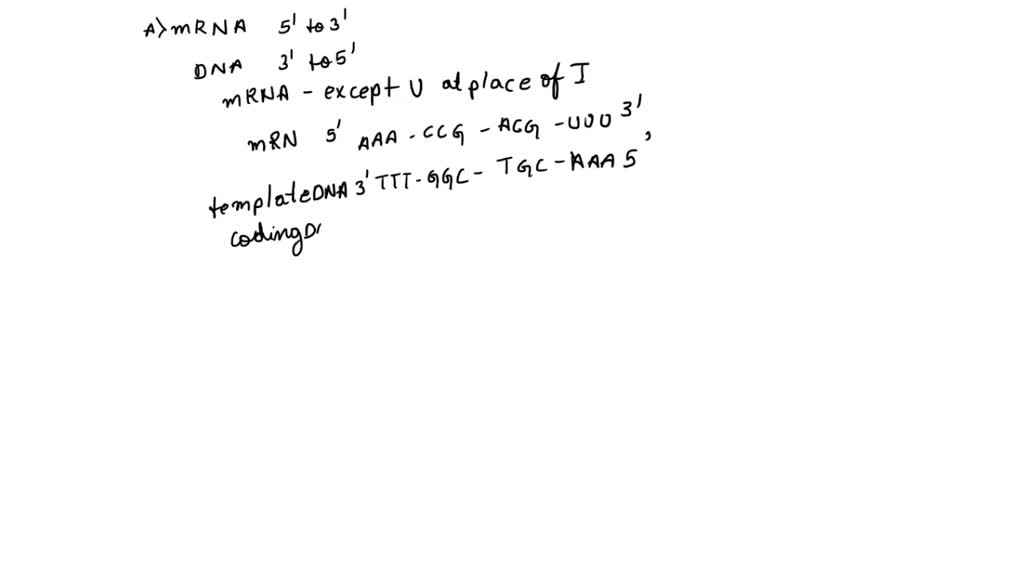 A) mRNA 5' to 3'
DNA 3' to 5'
mRNA - except U at place of I
mRN 5' AAA - CCG - ACG - UUU 3'
template DNA 3' TTT - GGC - TGC - AAA 5'
coding D